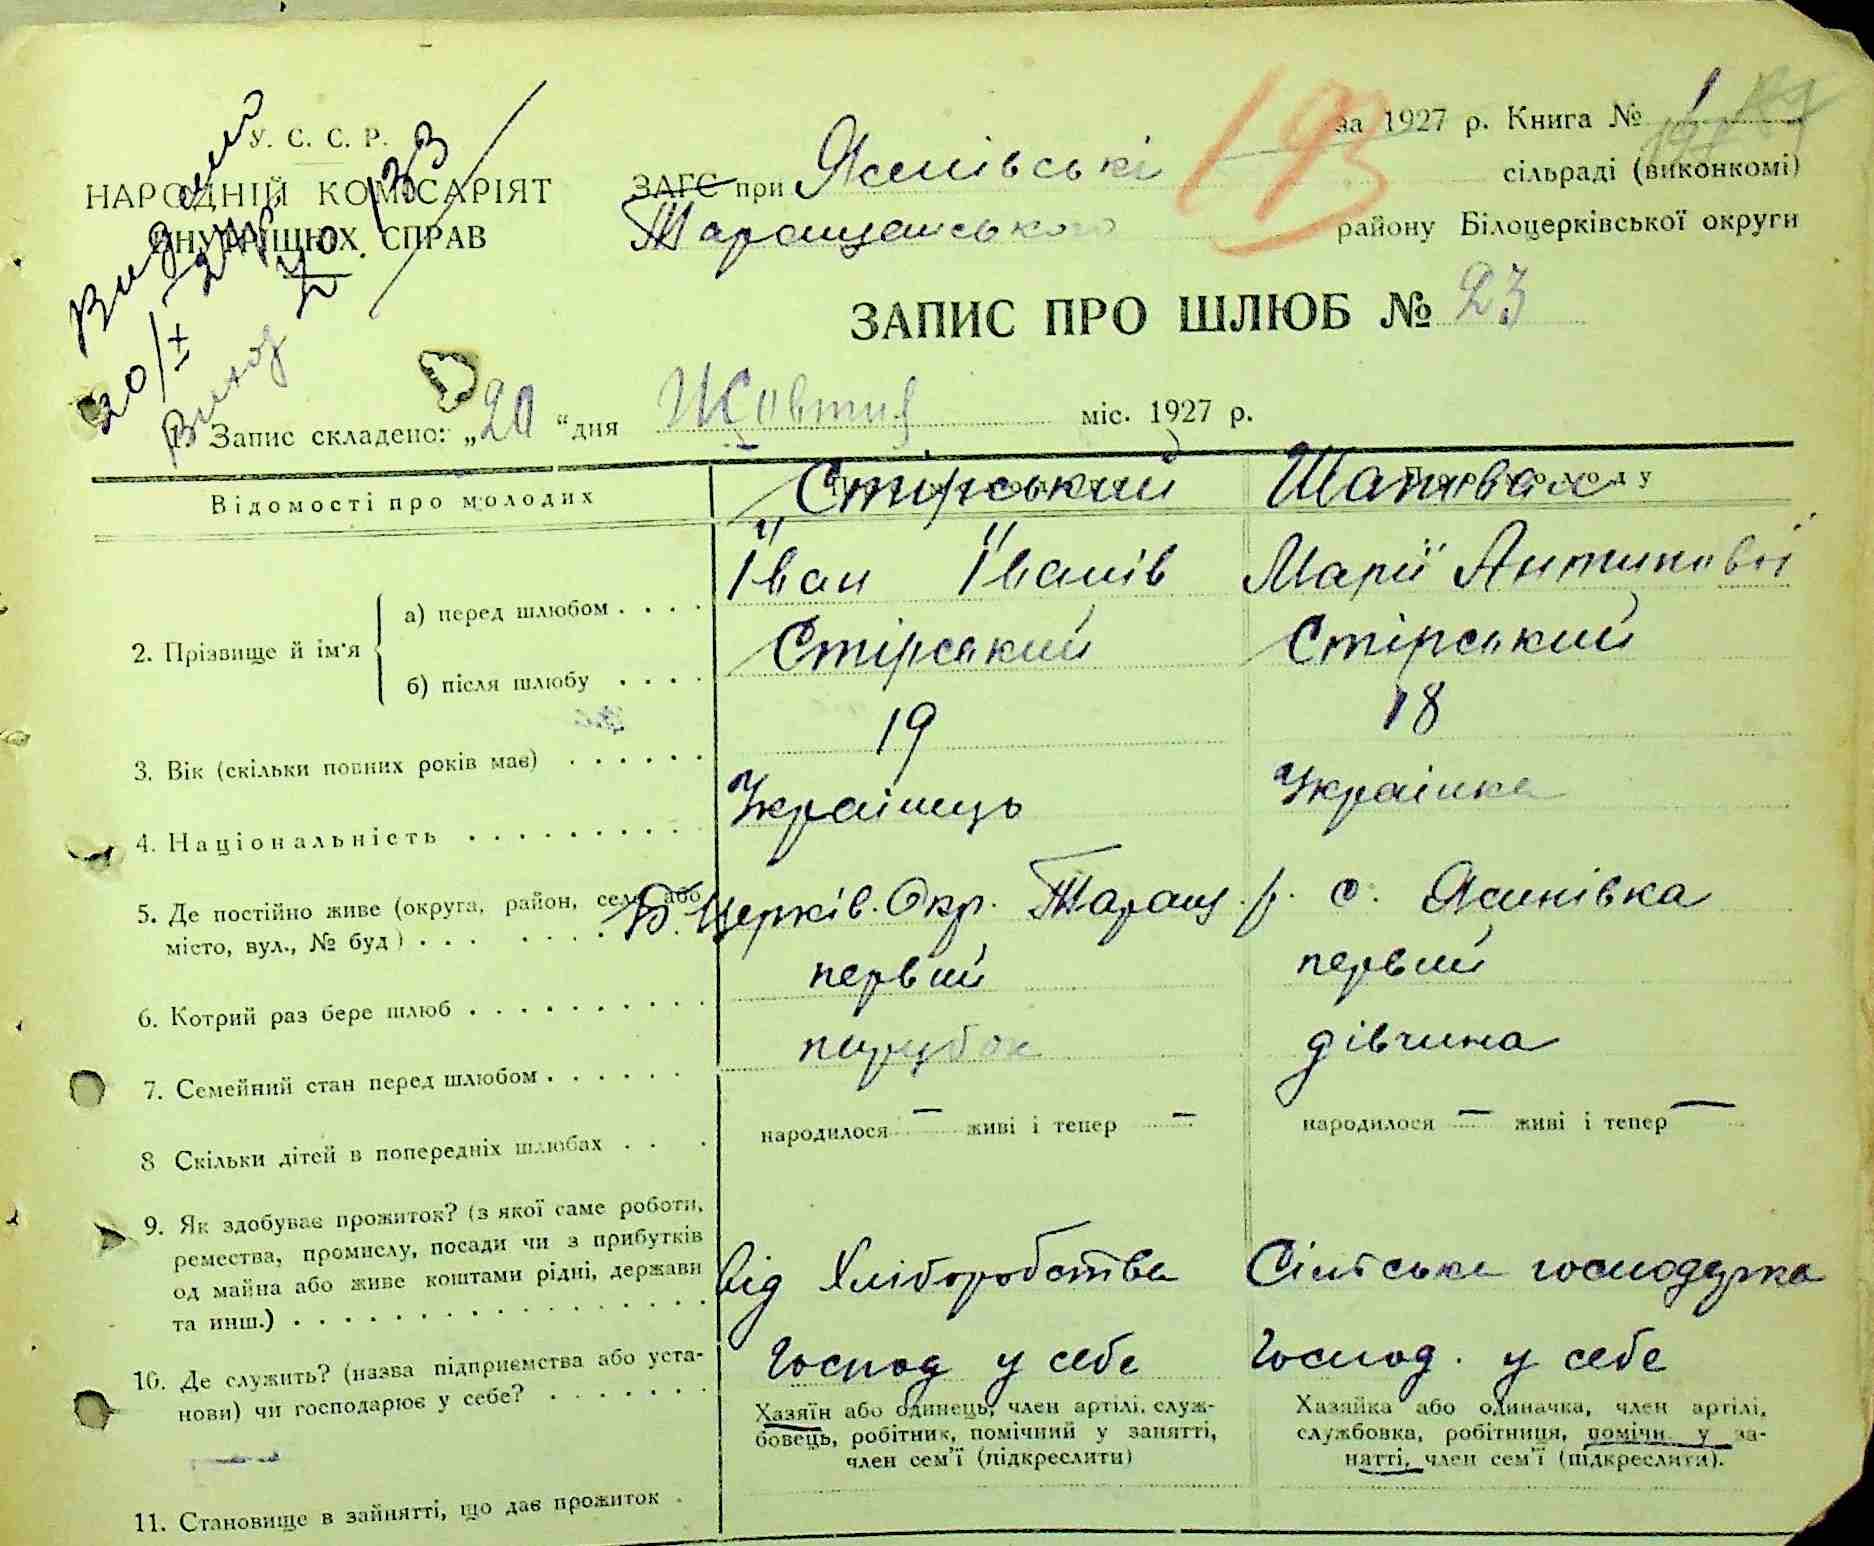 за 1927 р. Книга № 1
У. С. С. Р.
НАРОДНІЙ КОМІСАРІЯТ
ВНУТРІШНІХ СПРАВ
193
ЗАГС при Ясинівські сільраді (виконкомі)
Таращанського району Білоцерківської округи
ЗАПИС ПРО ШЛЮБ № 23
Запис складено: „20 “ дня Жовтня міс. 1927 р.
Відомості про молодих
Стірський
2. Прізвище й ім'я
а) перед шлюбом . . . . Іван Іванів Марії Антипової
б) після шлюбу . . . . Стірський Стірський
3. Вік (скільки повних років має) . . . . . . 19 18
4. Національність . . . . . . . . . . Українець Українка
5. Де постійно живе (округа, район, село або
місто, вул., № буд) . . . . . . . Б. Церків. Окр. Таращ. р. с. Ясинівка
6. Котрий раз бере шлюб . . . . . . . . . . первий первий
7. Семейний стан перед шлюбом . . . . . . парубок дівчина
8 Скільки дітей в попередніх шлюбах . . . народилося — живі і тепер — народилося — живі і тепер —
9. Як здобуває прожиток? (з якої саме роботи,
ремества, промислу, посади чи з прибутків
од майна або живе коштами рідні, держави
та инш.) . . . . . . . . . . . . . . . від Хліборобства Сільське господарка
10. Де служить? (назва підприємства або уста-
нови) чи господарює у себе? . . . . . . . Господ у себе Господ. у себе
Хазяїн або одинець, член артілі, служ-
бовець, робітник, помічний у занятті,
член сем'ї (підкреслити)
Хазяйка або одиначка, член артілі,
службовка, робітниця, помічн. у за-
нятті, член сем'ї (підкреслити).
11. Становище в зайнятті, що дає прожиток .